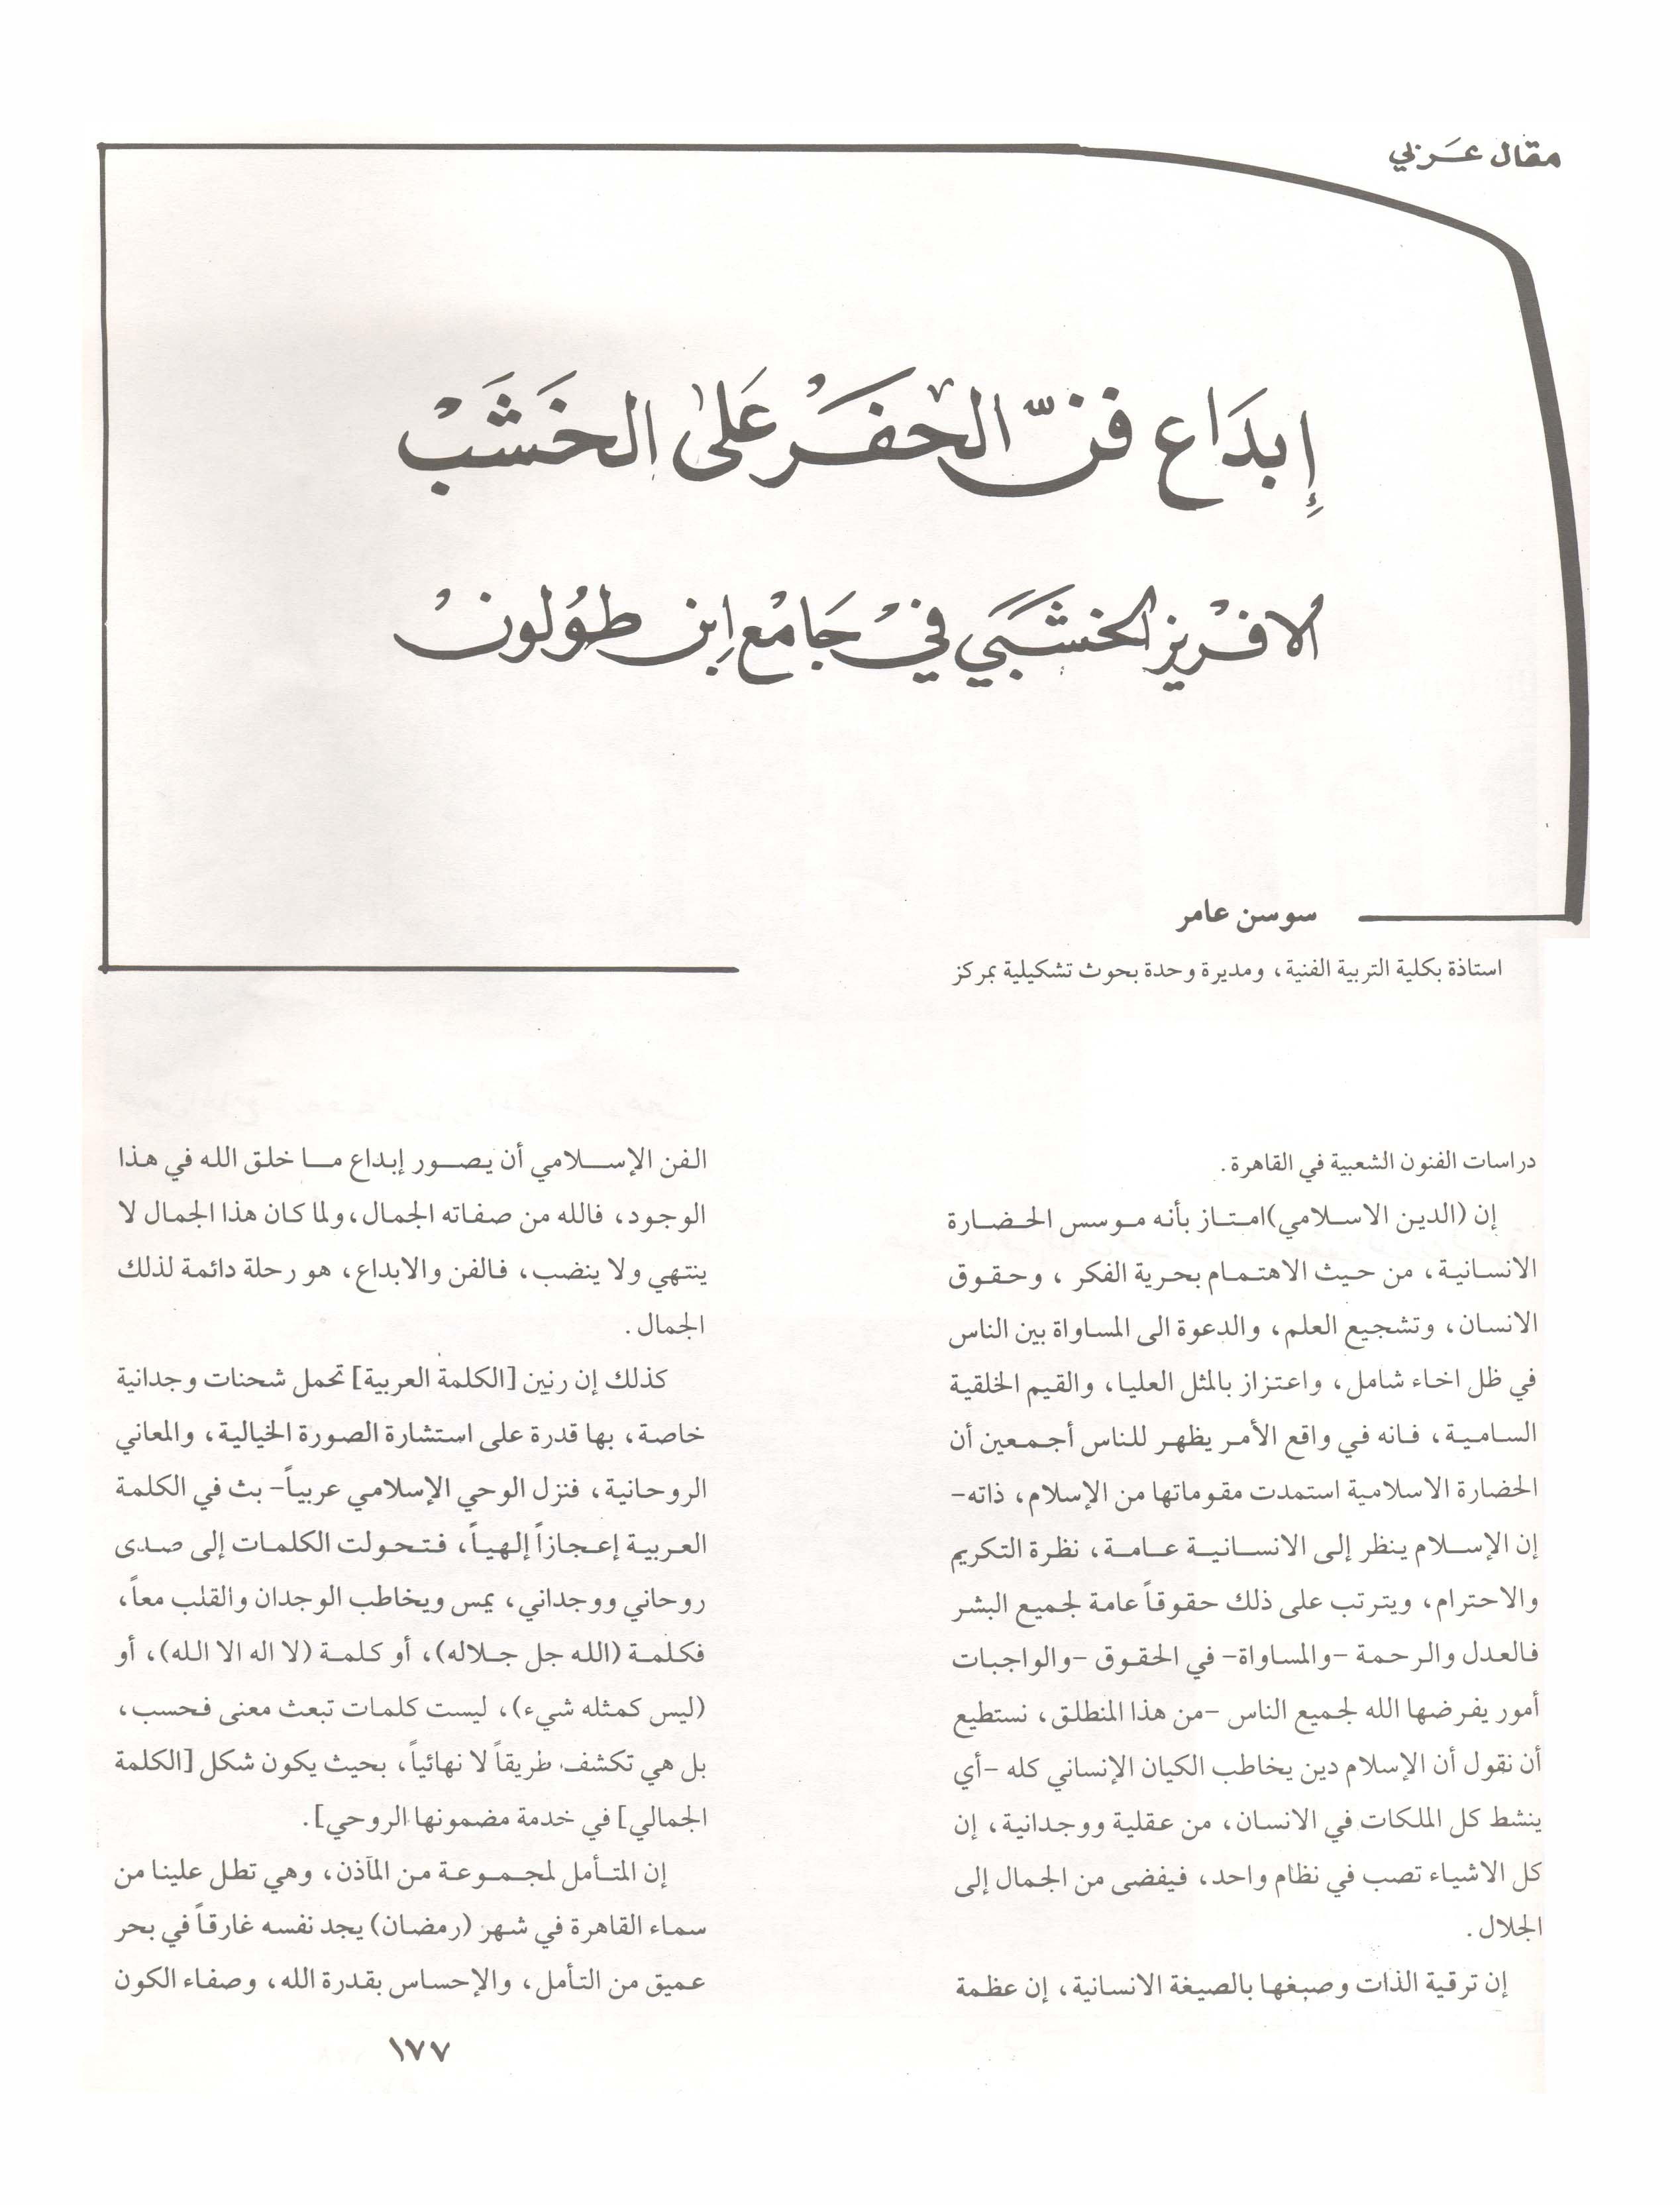 مقال عربي
إبداع فنّ الحفر على الخشب
الافريز الخشبي في جامع ابن طولون
سوسن عامر
استاذة بكلية التربية الفنية، ومديرة وحدة بحوث تشكيلية بمركز
دراسات الفنون الشعبية في القاهرة.
إن (الدين الاسلامي)امتاز بأنه موسس الحضارة
الانسانية، من حيث الاهتمام بحرية الفكر ، وحقوق
الانسان، وتشجيع العلم، والدعوة الى المساواة بين الناس
في ظل اخاء شامل، واعتزاز بالمثل العليا، والقيم الخلقية
السامية، فانه في واقع الأمر يظهر للناس أجمعين أن
الحضارة الاسلامية استمدت مقوماتها من الإسلام، ذاته-
إن الإسلام ينظر إلى الانسانية عامة، نظرة التكريم
والاحترام، ويترتب على ذلك حقوقاً عامة لجميع البشر
فالعدل والرحمة -والمساواة- في الحقوق -والواجبات
أمور يفرضها الله لجميع الناس -من هذا المنطلق، نستطيع
أن نقول أن الإسلام دين يخاطب الكيان الإنساني كله -أي
ينشط كل الملكات في الانسان، من عقلية ووجدانية، إن
كل الاشياء تصب في نظام واحد، فيفضى من الجمال إلى
الجلال.
إن ترقية الذات وصبغها بالصيغة الانسانية، إن عظمة
الفن الإسلامي أن يصور إبداع ما خلق الله في هذا
الوجود، فالله من صفاته الجمال،ولما كان هذا الجمال لا
ينتهي ولا ينضب، فالفن والابداع، هو رحلة دائمة لذلك
الجمال.
كذلك إن رنين [الكلمة العربية] تحمل شحنات وجدانية
خاصة، بها قدرة على استشارة الصورة الخيالية، والمعاني
الروحانية، فنزل الوحي الإسلامي عربياً- بث في الكلمة
العربية إعجازاً إلهياً، فتحولت الكلمات إلى صدى
روحاني ووجداني، يمس ويخاطب الوجدان والقلب معاً،
فكلمة (الله جل جلاله)، أو كلمة (لا اله الا الله)، أو
(ليس كمثله شيء)، ليست كلمات تبعث معنى فحسب،
بل هي تكشف طريقاً لا نهائياً، بحيث يكون شكل [الكلمة
الجمالي] في خدمة مضمونها الروحي].
إن المتأمل لمجموعة من المآذن، وهي تطل علينا من
سماء القاهرة في شهر (رمضان) يجد نفسه غارقاً في بحر
عميق من التأمل، والإحساس بقدرة الله، وصفاء الكون
١٧٧